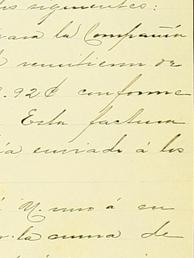 los siguientes:
para la Compañia
remitieron de
.92¢ conforme
Esta factura
enviada á los
á
la suma de